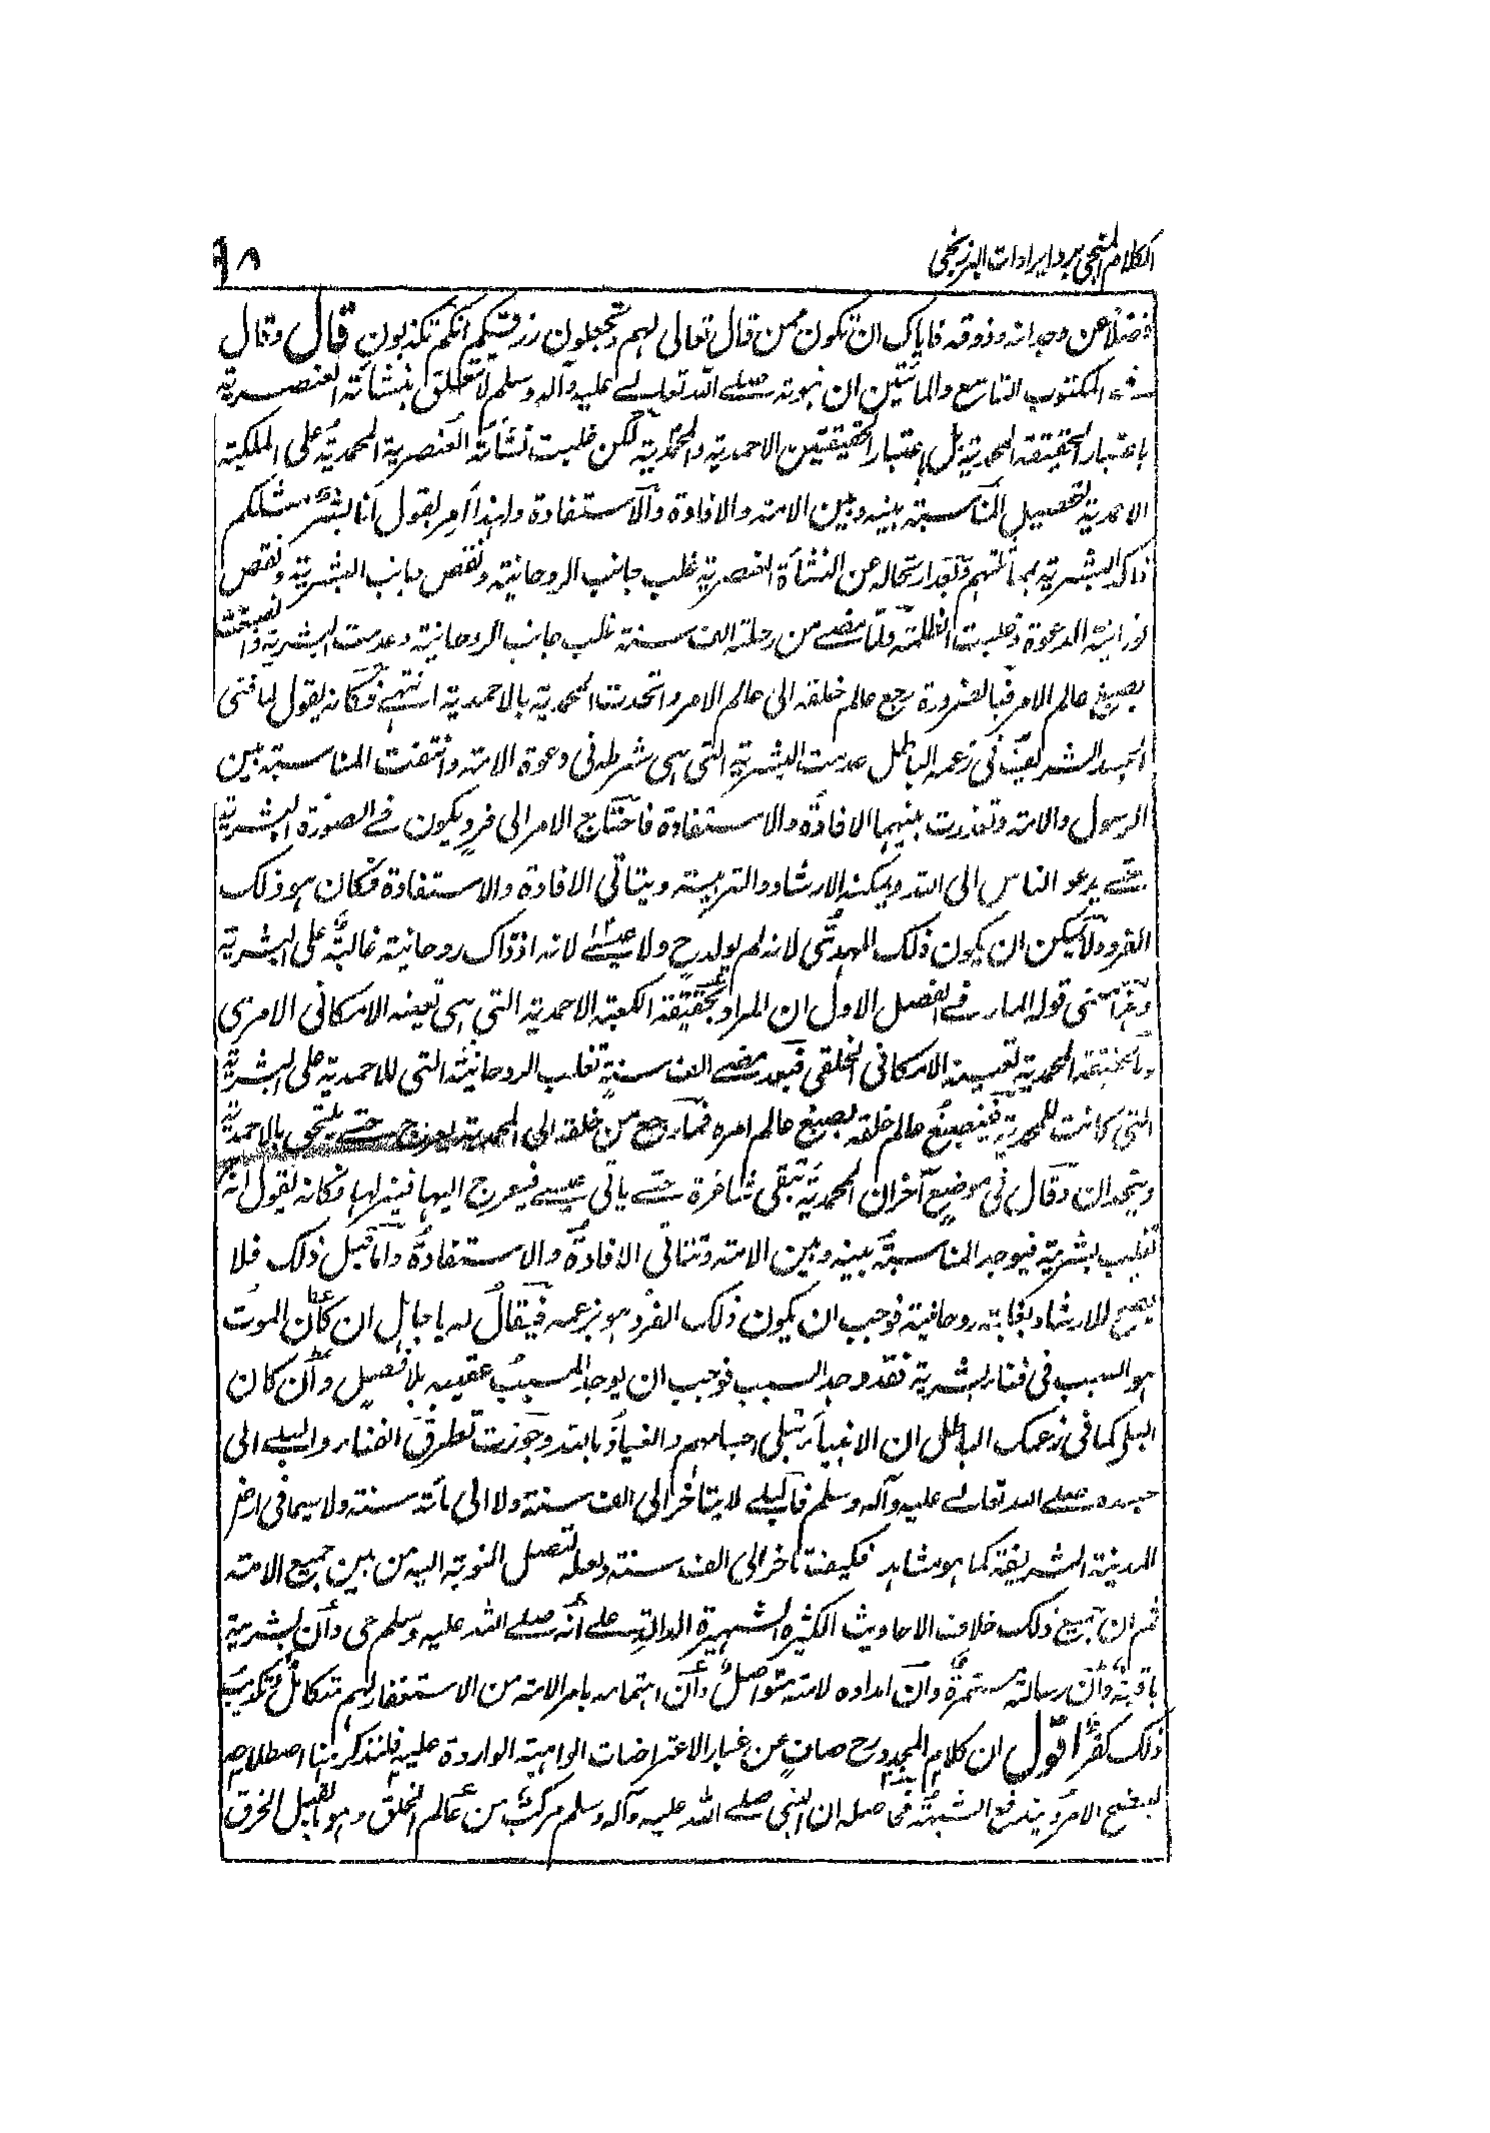 الكلام المنجى برد ايرادات البرزنجى
٩٨
فضلا عن وجدانه وذوقه فاياك ان تكون ممن قال تعالى لهم وتجعلون رزقكم انكم تكذبون قال وقال
فى المكتوب التاسع والمائتين ان نبوته صلى الله تعالى عليه وآله وسلم لا تتعلق بنشأته العنصرية
باعتبار الحقيقة المحمدية بل باعتبار الحقيقتين الاحمدية والمحمدية لكن غلبت نشأته العنصرية المحمدية على الملكية
الاحمدية لتحصيل المناسبة بينه وبين الامة والافادة والاستفادة ولهذا امر بقول انا بشر مثلكم
ذاكر البشرية بمماثلتهم وبعد ارتحاله عن النشأة العنصرية غلب جانب الروحانية ونقص جانب البشرية ونقص
نورانية الدعوة وغلبت الظلمة ولما مضى من رحلته الف سنة غلب جانب الروحانية وعدمت البشرية وانصبغت
بصبغ عالم الامر فبالضرورة رجع عالم خلقه الى عالم الامر واتحدت المحمدية بالاحمدية انتهى فكانه يقول لما فنى
الجسد الشريف فى زعمه الباطل عدمت البشرية التى هى شرط فى دعوة الامة وانتفت المناسبة بين
الرسول والامة وتعذرت بينهما الافادة والاستفادة فاحتاج الامر الى فرد يكون فى الصورة البشرية
حتى يدعو الناس الى الله ويمكنه الارشاد والتربية ويتاتى الافادة والاستفادة فكان هو ذلك
الفرد ولا يمكن ان يكون ذلك المهدى لانه لم يولد ح ولا عيسى لانه اذ ذاك روحانية غالبة على البشرية
وهذا معنى قوله المار فى الفصل الاول ان المراد بحقيقة الكعبة الاحمدية التى هى تعينه الامكانى الامرى
والحقيقة المحمدية تعينه الامكانى الخلقى فبعد مضى الف سنة تغلب الروحانية التى للاحمدية على البشرية
التى كانت للمحمدية فينصبغ عالم خلقه بصبغ عالم امره فما رجع من خلقه الى المحمدية يعرج حتى يلتحق بالاحمدية
ويتحدان وقال فى موضع آخر ان المحمدية تبقى شاغرة حتى ياتى عيسى فيعرج اليها فينزلها فكانه يقول انه
تغليب بشرية فيوجد المناسبة بينه وبين الامة وتتاتى الافادة والاستفادة واما قبل ذلك فلا
يصح للارشاد لغلبة روحانية فوجب ان يكون ذلك الفرد هو بزعمه فيقال له يا جاهل ان كان الموت
هو السبب فى فناء البشرية فقد وجد السبب فوجب ان يوجد المسبب عقيبه بلا فصل وان كان
البلى كما فى زعمك الباطل ان الانبياء تبلى اجسامهم والعياذ بالله وجوزت تطرق الفناء والبلى الى
جسده صلى الله تعالى عليه وآله وسلم فالبلى لا يتاخر الى الف سنة ولا الى مأة سنة ولا سيما فى ارض
المدينة الشريفة كما هو مشاهد فكيف تاخر الى الف سنة ولعله لتصل النوبة اليه من بين جميع الامة
ثم ان جميع ذلك خلاف الاحاديث الكثيرة الشهيرة الدالة على انه صلى الله عليه وسلم حى وان بشرية
باقية وان رسالته مستمرة وان امداده لامته متواصل وان اهتمامه بامر الامة من الاستغفار لهم متكامل وتكذيب
ذلك كفر اقول ان كلام المجدد رح صاف عن غبار الاعتراضات الواهية الواردة عليه فلنذكر هنا اصطلاحه
ليتضح الامر ويندفع الشبهة فحاصله ان النبى صلى الله عليه وآله وسلم مركب من عالم الخلق وهو القابل الخرق